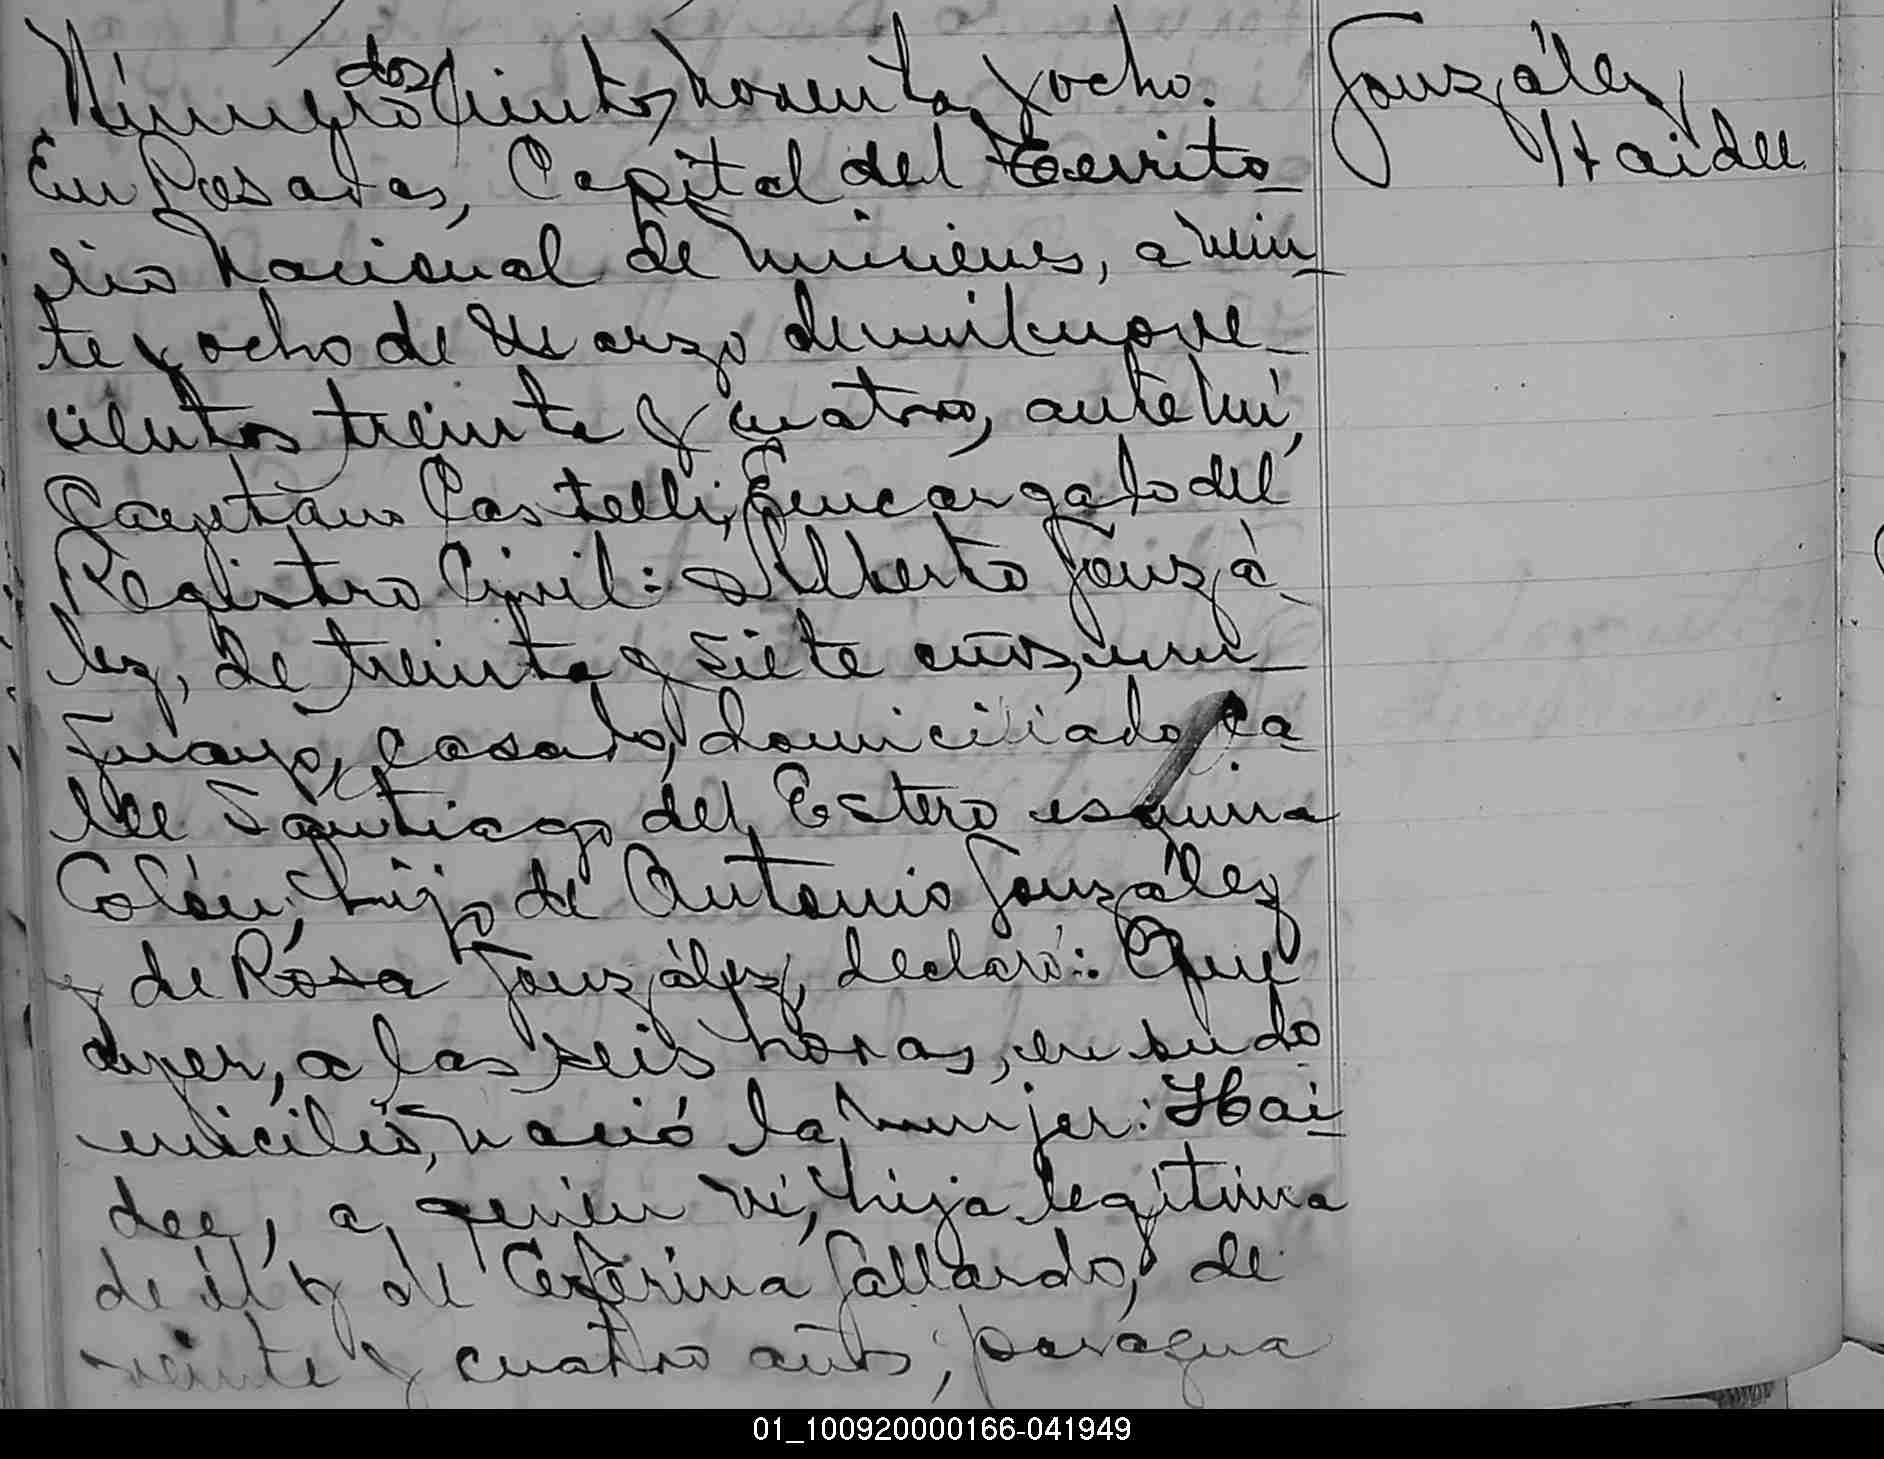 Número doscientos noventa y ocho.
En Posadas, Capital del Territo-
rio Nacional de Misiones, a vein-
te y ocho de Marzo de mil nove-
cientos treinta y cuatro, ante mí,
Cayetano Castelli, Encargado del
Registro Civil: Alberto Gonzá-
lez, de treinta y siete años, uru-
guayo, casado, domiciliado ca-
lle Santiago del Estero esquina
Colón, hijo de Antonio González
y de Rosa González, declaró: Que
ayer, a las seis horas, en su do-
micilio, nació la mujer: Hai-
dee, a quien vi, hija legítima
de él y de Ceferina Gallardo, de
veinte y cuatro años, paragua
González
Haidee
01_100920000166-041949